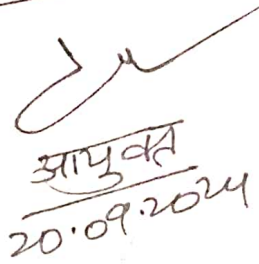 आयुक्त
20.09.2024